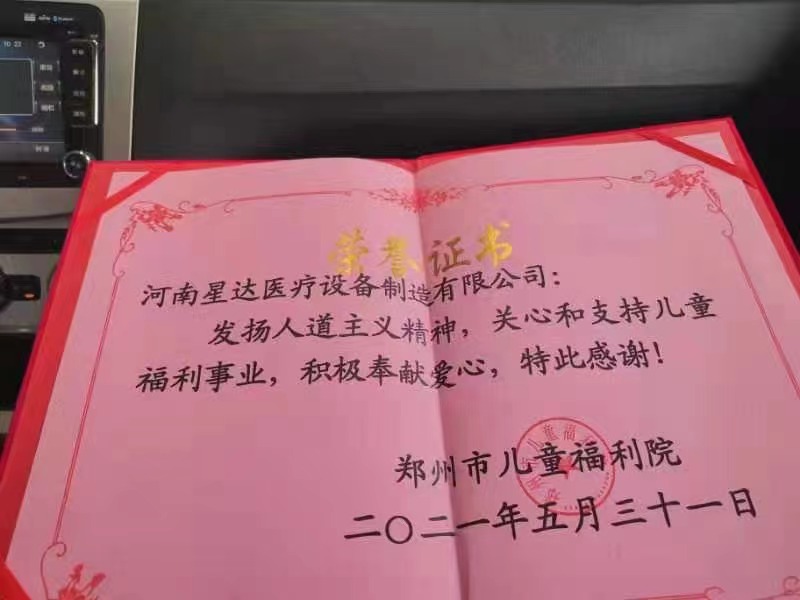 10 22
荣誉证书
河南星达医疗设备制造有限公司：
发扬人道主义精神，关心和支持儿童
福利事业，积极奉献爱心，特此感谢！
郑州市儿童福利院
二〇二一年五月三十一日